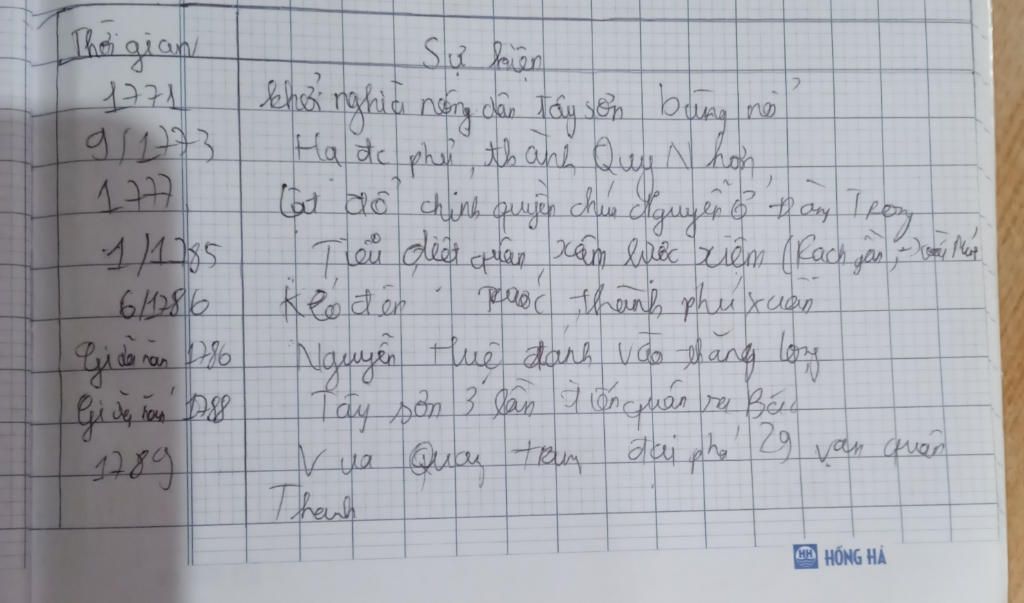 Thời gian Sự kiện
1771 khởi nghĩa nông dân Tây sơn bùng nổ
9/1773 Hạ đc phủ, thành Quy Nhơn
1777 Lật đổ chính quyền chúa Nguyễn ở Đàng Trong
1/1785 Tiêu diệt quân xâm lược xiêm (Rạch gầm,
6/1786 Kéo đến thành phú xuân
1786 Nguyễn Huệ đánh vào thăng long
1788 Tây sơn 3 lần tiến quân ra Bắc
1789 Vua Quang trung đại phá 29 vạn quân
Thanh
HH HỒNG HÀ